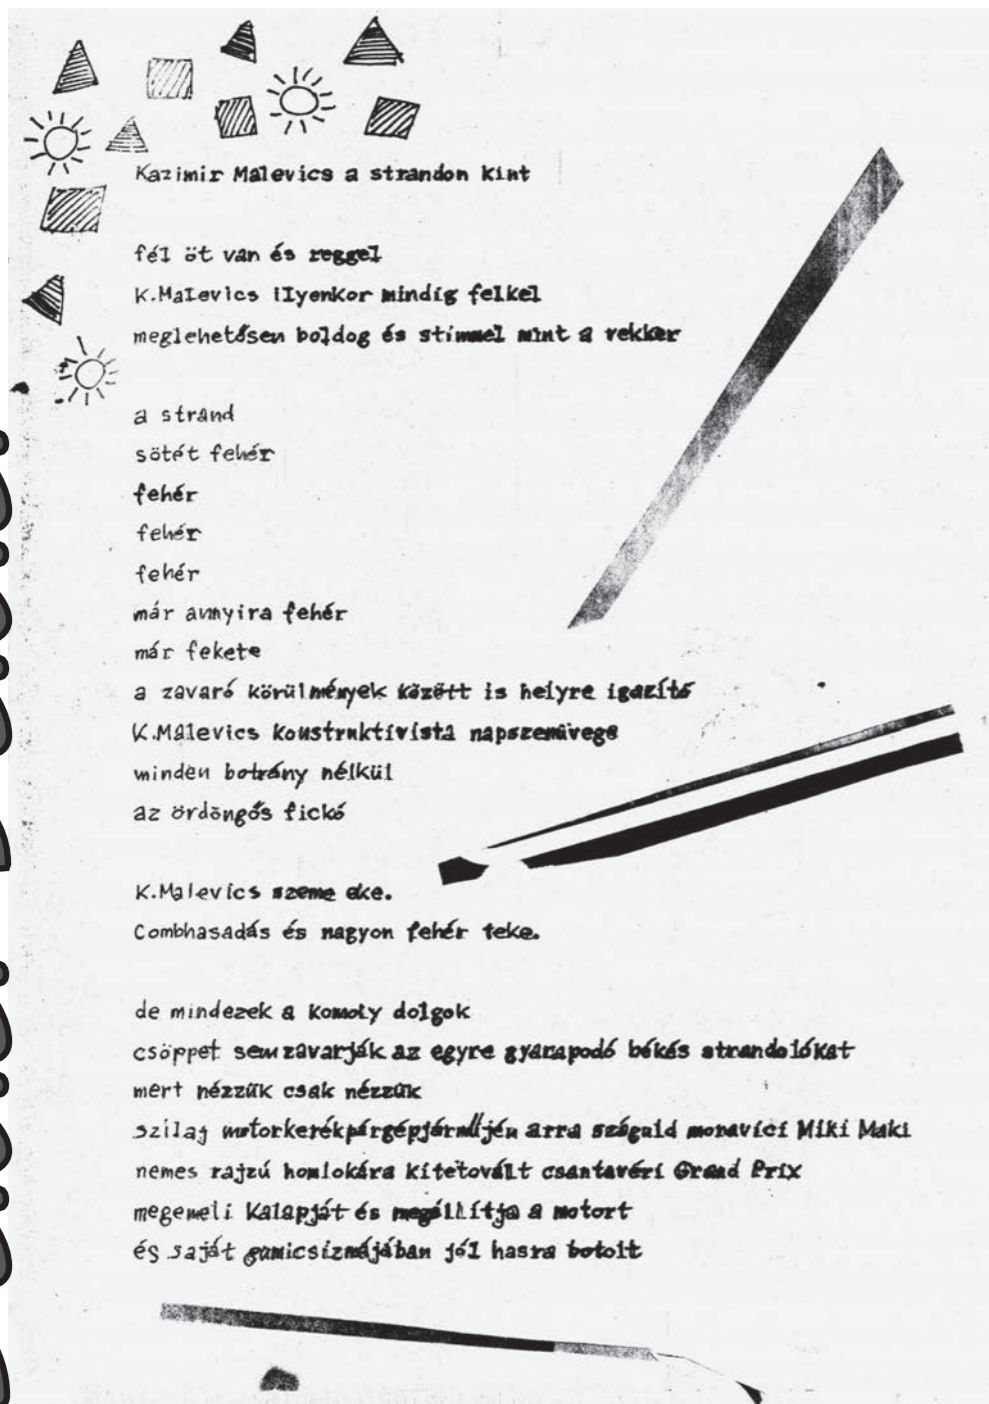 Kazimir Malevics a strandon kint
fél öt van és reggel
K.Malevics ilyenkor mindíg felkel
meglehetősen boldog és stímmel mint a vekker
a strand
sötét fehér
fehér
fehér
fehér
már annyira fehér
már fekete
a zavaró körülmények között is helyre igazító
K.Malevics konstruktívista napszemüvege
minden botrány nélkül
az ördöngős fickó
K.Malevics szeme eke.
Combhasadás és nagyon fehér teke.
de mindezek a komoly dolgok
csöppet sem zavarják az egyre gyarapodó békés strandolókat
mert nézzük csak nézzük
szilaj motorkerékpárgépjárműjén arra száguld moravici Miki Maki
nemes rajzú homlokára kitetovált csantavéri Grand Prix
megemeli kalapját és megállítja a motort
és saját gumicsizmájában jól hasra botolt